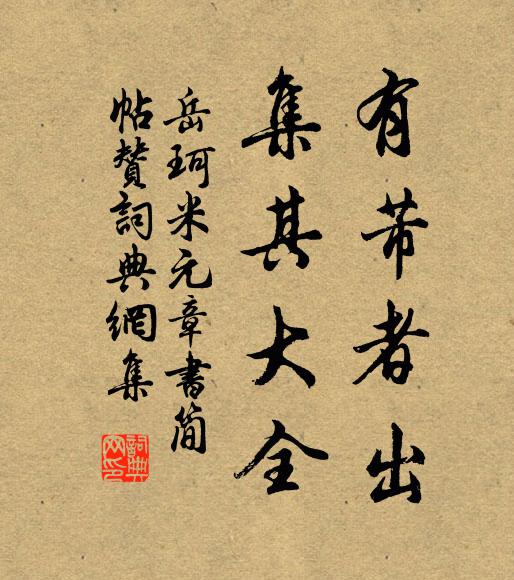 有芾者出
集其大全
岳珂米元章書简
帖贊詞典網集
詞典网印